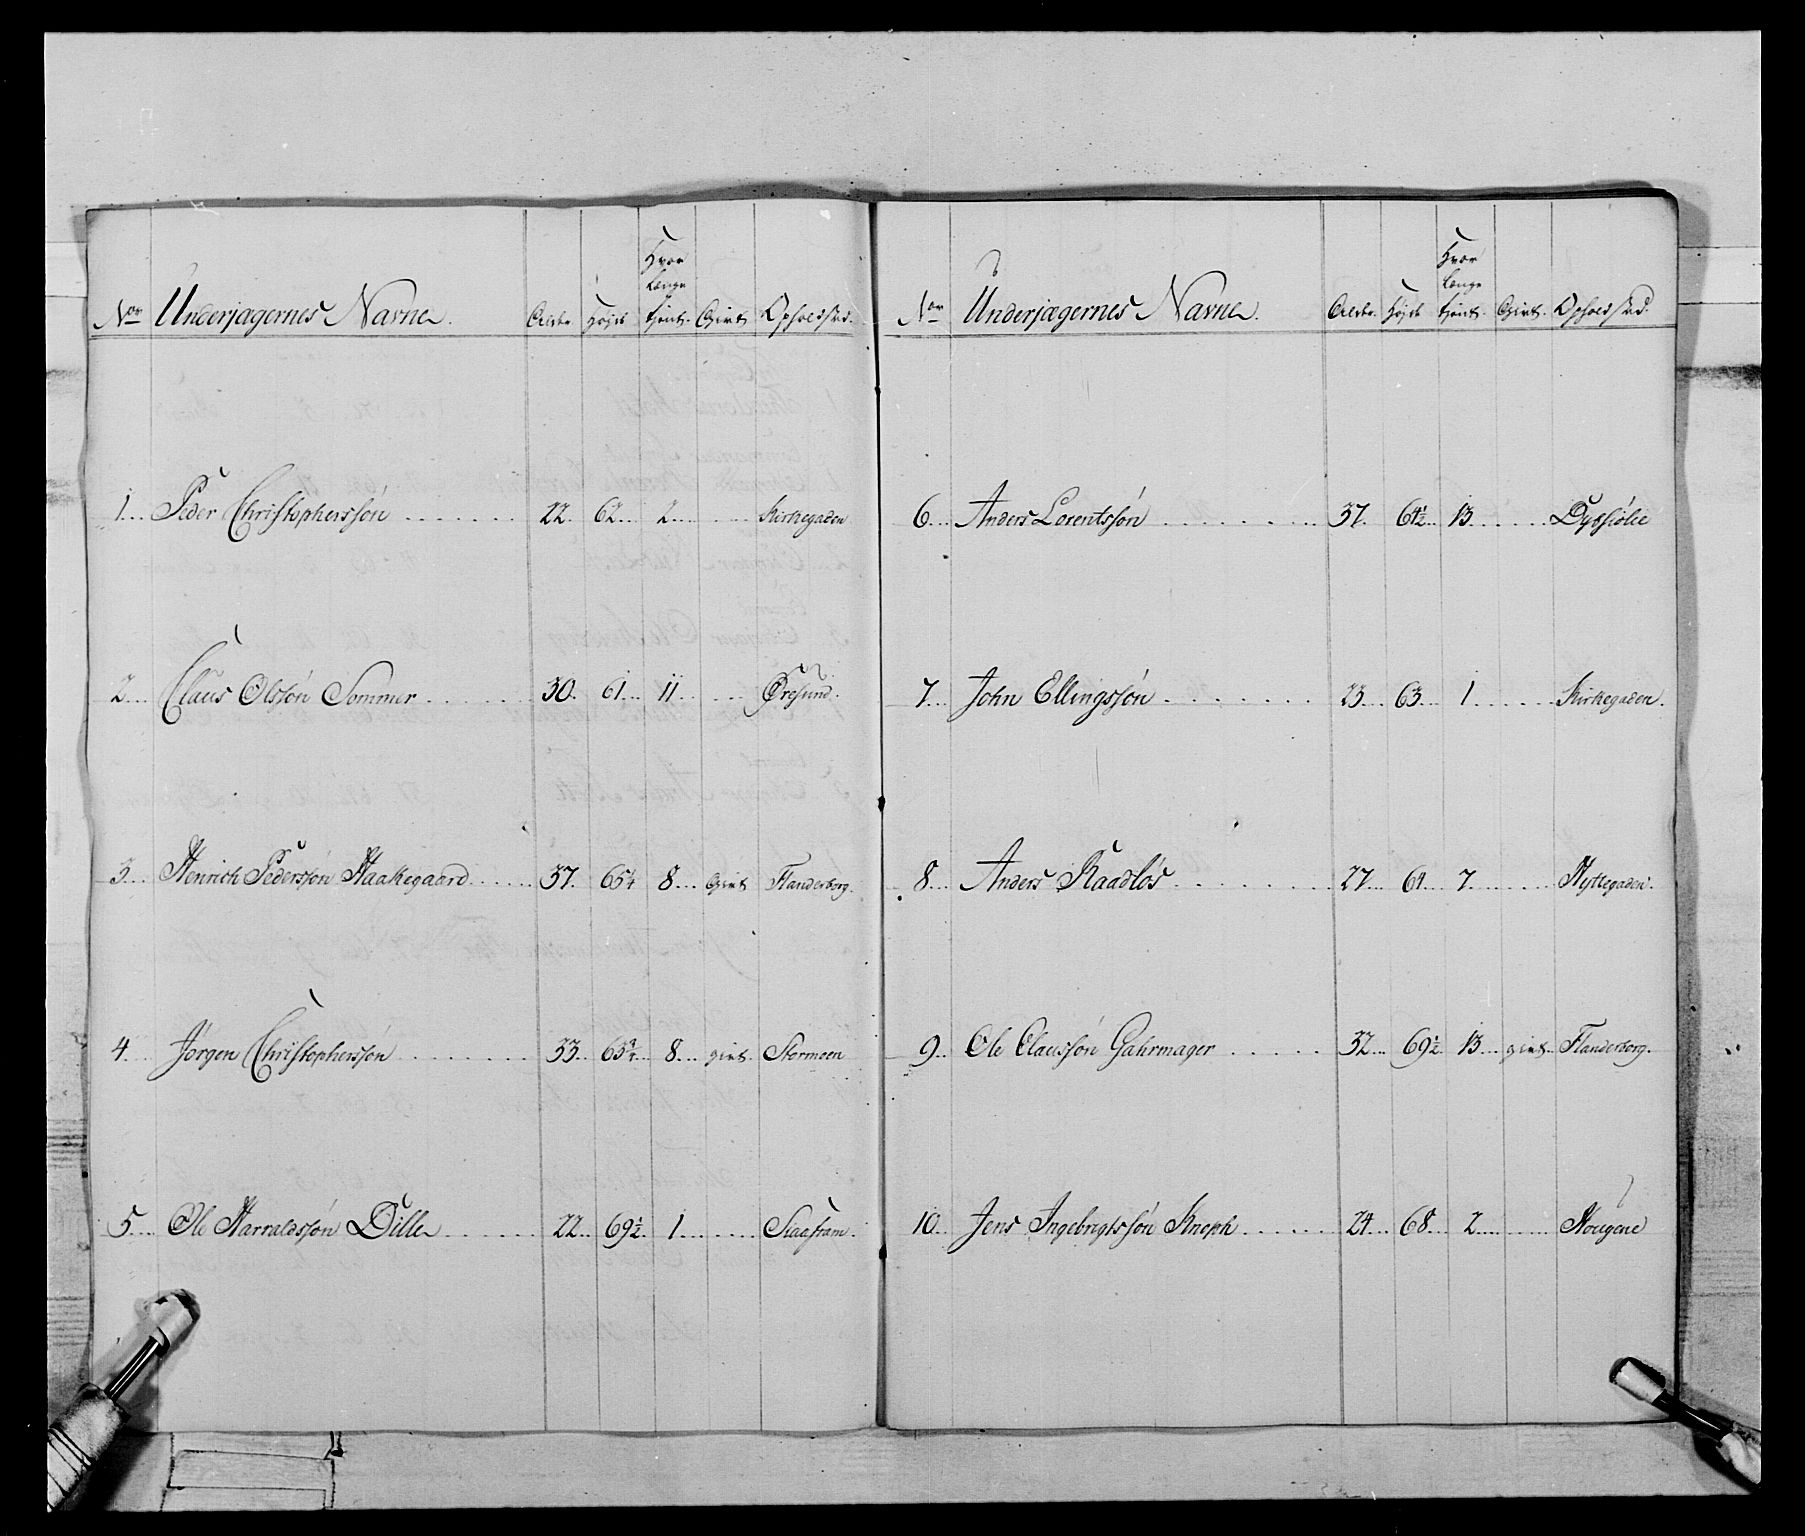 Hvor
længe
No Underjægernes Navne. Alder. Højde tient. Givt. Opholdsted.
1 Peder Christopherssøn 22. 62 2 Kirkegaden
2 Claus Olssøn Sommer 30. 61 11 Øresund.
3 Henrich Pederssøn Haakegaard 37. 65¼ 8 Givt Flanderborg.
4 Jørgen Christopherssøn 33 65¾ 8 givt. Stormoen
5 Ole Harraldssøn Dille 22 69½ 1
Hvor
længe
No Underjægernes Navne. Alder. Højde tient. Givt. Opholdsted.
6 Anders Lorentssøn 37. 64½ 13
7 John Ellingssøn 23 63 1 Kirkegaden.
8 Anders Raadløs 27 64 7 Hyttegaden.
9 Ole Claussøn Gahrmager 32 69½ 13 givt Flanderborg.
10 Jens Ingebrigtssøn Kneph 24 68 2 Hougene